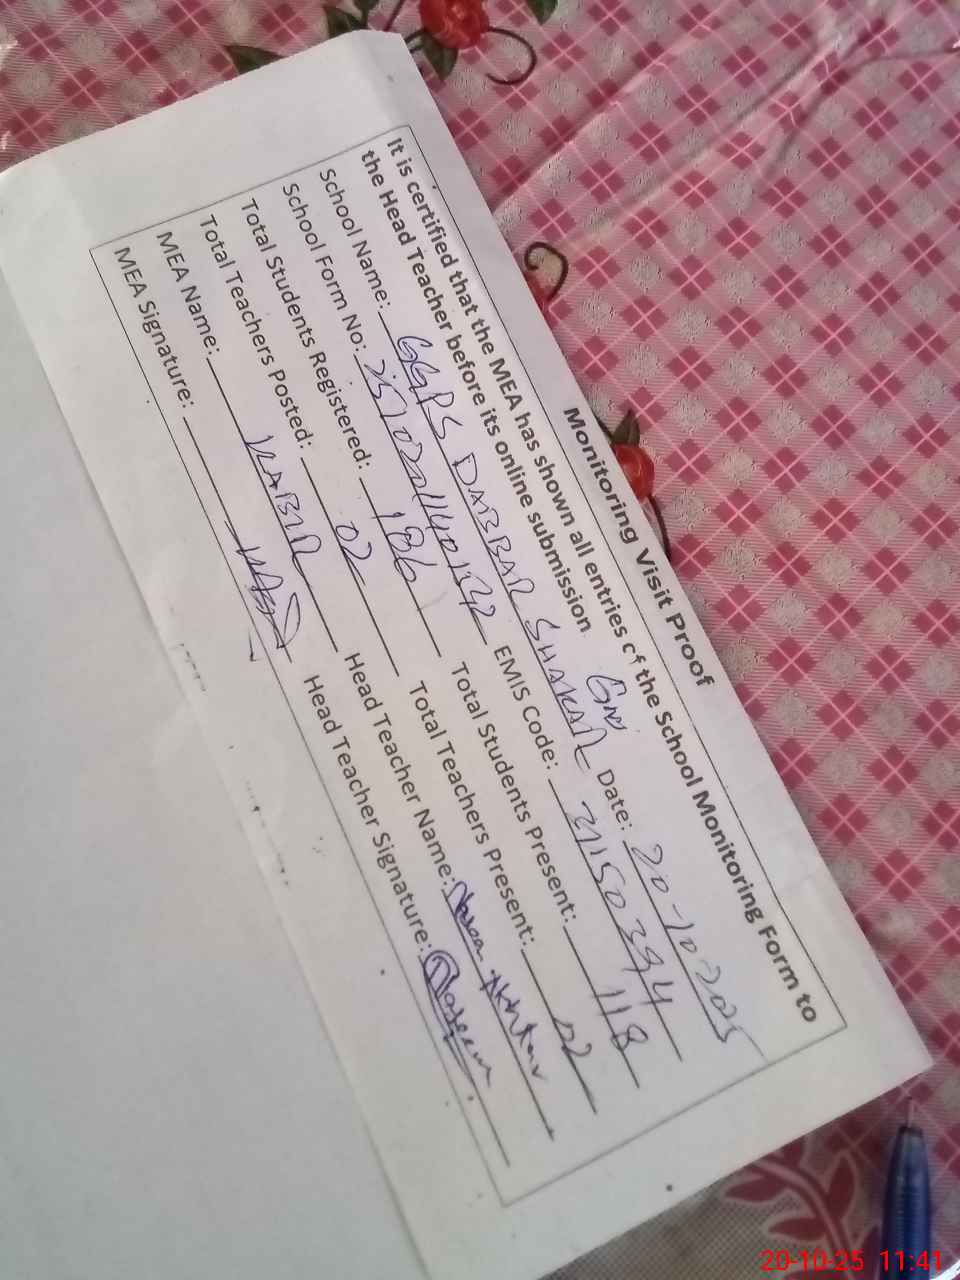 Monitoring Visit Proof
It is certified that the MEA has shown all entries of the School Monitoring Form to
the Head Teacher before its online submission.
School Name: GGPS DABBAR SHAKAR Date: 20-10-2025
School Form No: EMIS Code:
Total Students Registered: 186 Total Students Present: 118
Total Teachers Posted: 02 Total Teachers Present: 02
MEA Name: KABIR Head Teacher Name:
MEA Signature: Head Teacher Signature:
20-10-25 11:41